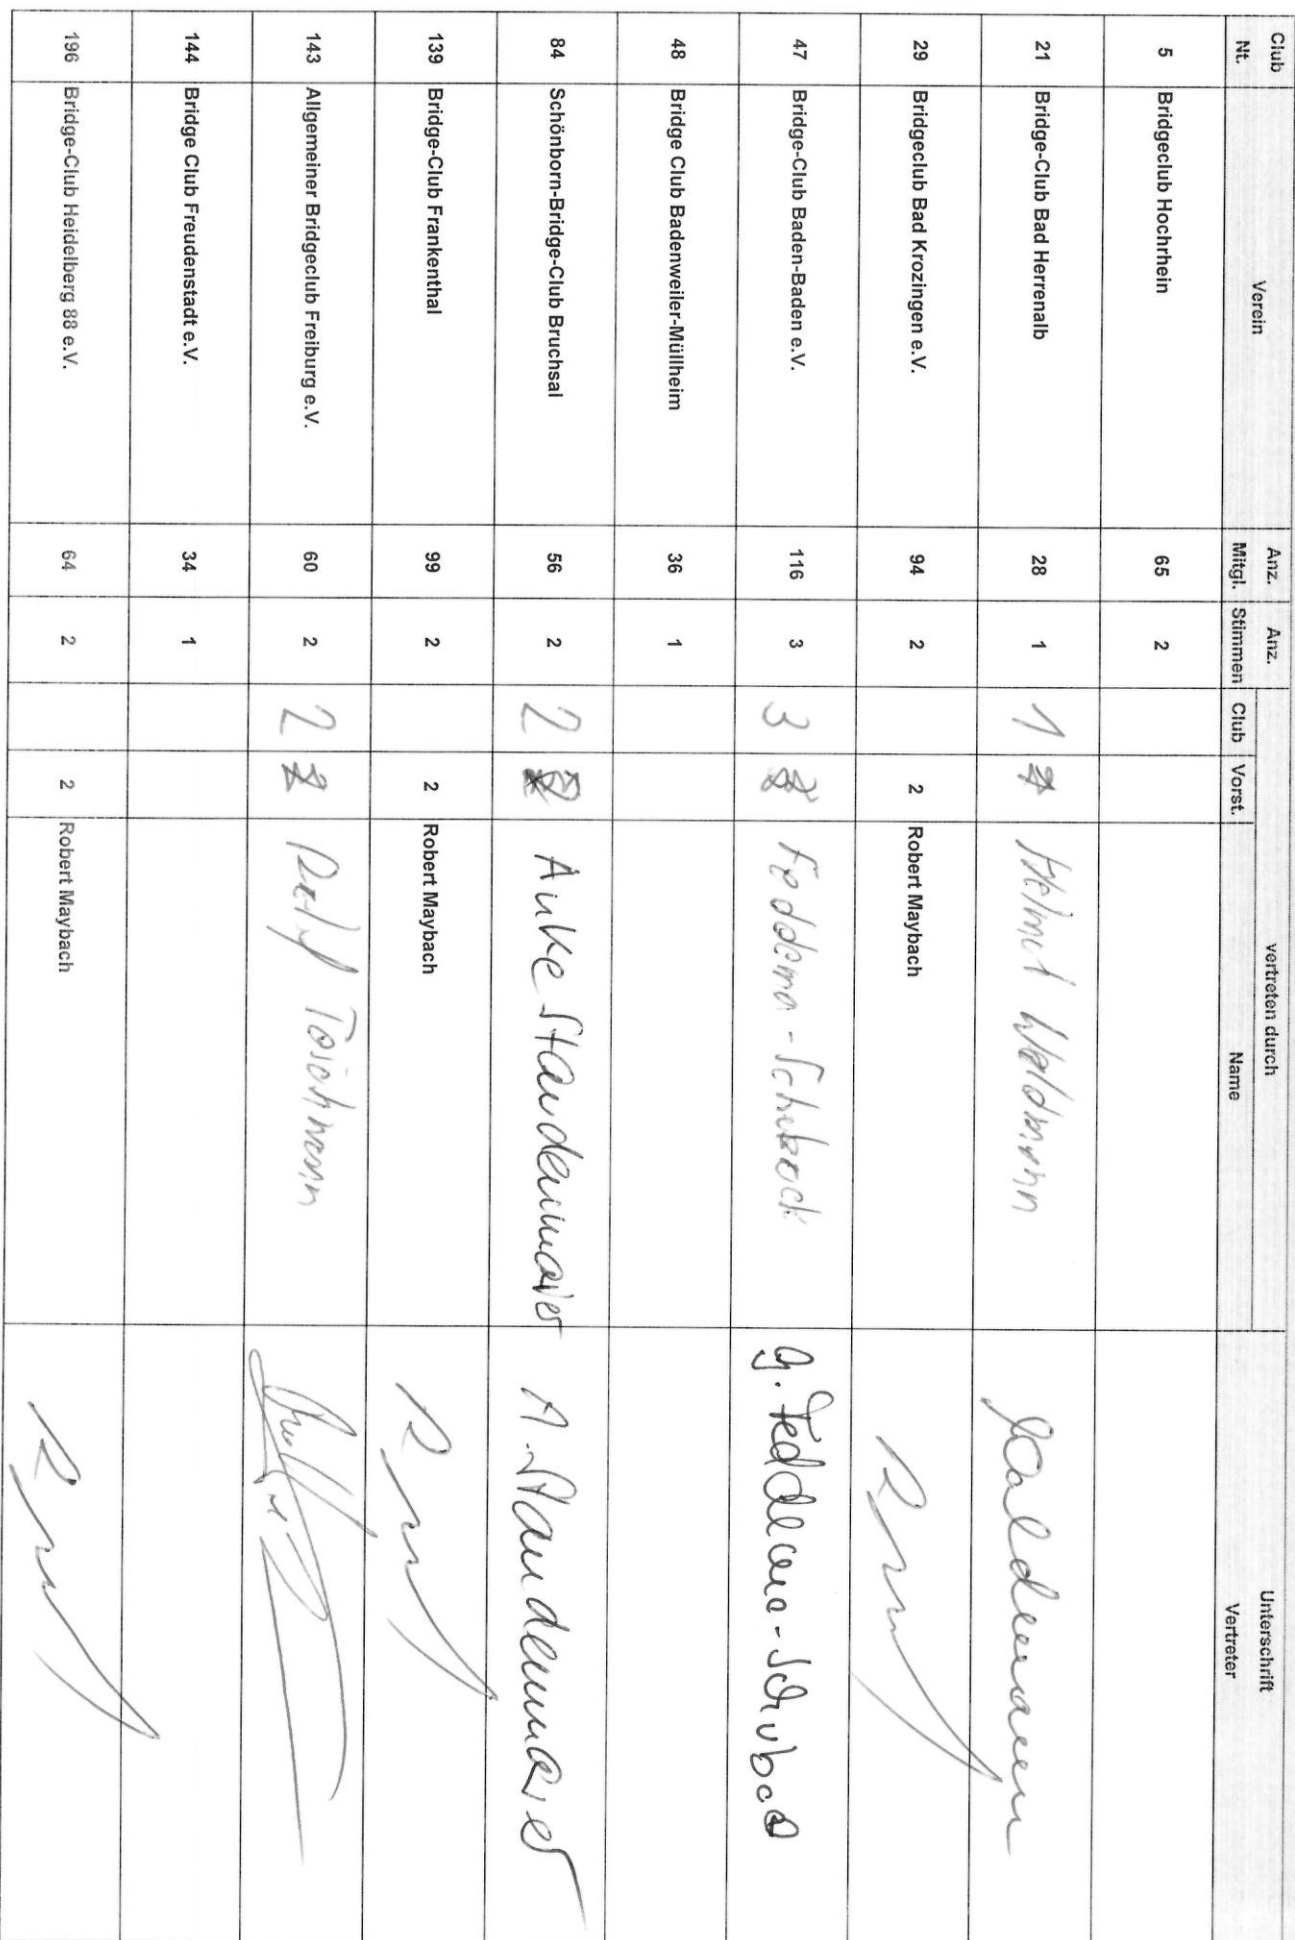 Club Nt. Verein Anz. Mitgl. Anz. Stimmen vertreten durch Club Vorst. Name Unterschrift Vertreter
5 Bridgeclub Hochrhein 65 2
21 Bridge-Club Bad Herrenalb 28 1 1 Helmut Waldmann Waldmann
29 Bridgeclub Bad Krozingen e.V. 94 2 2 Robert Maybach
47 Bridge-Club Baden-Baden e.V. 116 3 3 Feddema-Schubock G. Feddema-Schubock
48 Bridge Club Badenweiler-Müllheim 36 1
84 Schönborn-Bridge-Club Bruchsal 56 2 2 Anke Staudenmaier A. Staudenmaier
139 Bridge-Club Frankenthal 99 2 2 Robert Maybach
143 Allgemeiner Bridgeclub Freiburg e.V. 60 2 2
144 Bridge Club Freudenstadt e.V. 34 1
196 Bridge-Club Heidelberg 88 e.V. 64 2 2 Robert Maybach